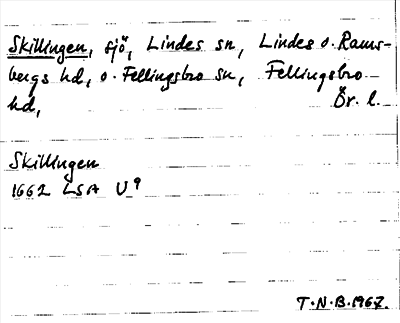 Skillingen, sjö, Lindes sn, Lindes o. Rams-
bergs hd, o. Fellingsbro sn, Fellingsbro
hd, Ör. l.
Skillingen
1662 LSA U⁹
T.N.B.1967.